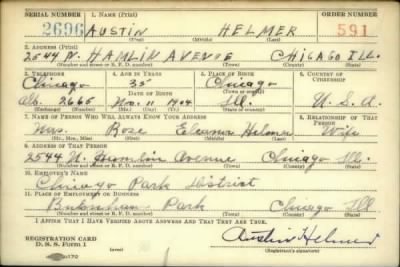 SERIAL NUMBER 1. NAME (Print) ORDER NUMBER
2696 AUSTIN HELMER 591
(First) (Middle) (Last)
2. ADDRESS (Print)
2544 N. HAMLIN AVENUE CHICAGO ILL.
(Number and street or R. F. D. number) (Town) (County) (State)
3. TELEPHONE 4. AGE IN YEARS 5. PLACE OF BIRTH 6. COUNTRY OF CITIZENSHIP
Chicago 35 Chicago
DATE OF BIRTH (Town or county)
2665 Nov. 11 1904 Ill. U.S.A.
(Exchange) (Number) (Mo.) (Day) (Yr.) (State or country)
7. NAME OF PERSON WHO WILL ALWAYS KNOW YOUR ADDRESS 8. RELATIONSHIP OF THAT PERSON
Mrs. Rose Eleanor Helmer Wife
(Mr., Mrs., Miss) (First) (Middle) (Last)
9. ADDRESS OF THAT PERSON
2544 N. Hamlin Avenue Chicago Ill.
(Number and street or R. F. D. number) (Town) (County) (State)
10. EMPLOYER'S NAME
Chicago Park District
11. PLACE OF EMPLOYMENT OR BUSINESS
Park Chicago Ill
(Number and street or R. F. D. number) (Town) (County) (State)
I AFFIRM THAT I HAVE VERIFIED ABOVE ANSWERS AND THAT THEY ARE TRUE.
REGISTRATION CARD
D. S. S. Form 1
Austin Helmer
(Registrant's signature)